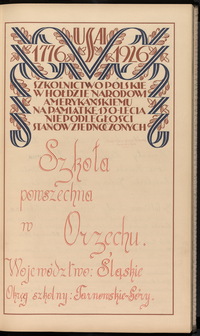 USA
1776 1926
SZKOLNICTWO POLSKIE
W HOŁDZIE NARODOWI
AMERYKAŃSKIEMU
NA PAMIĄTKĘ 150-LECIA
NIEPODLEGŁOŚCI
STANÓW ZJEDNOCZONYCH
Szkoła
powszechna
w
Orzechu.
Województwo: Śląskie
Okrąg szkolny: Tarnowskie-Góry.